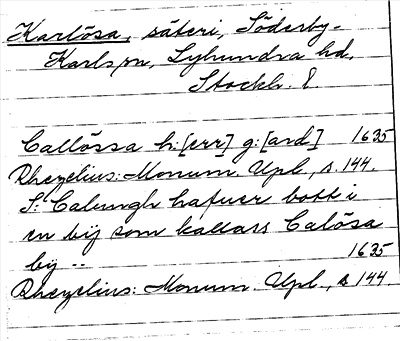 Karlösa, säteri, Söderby-
Karls sn, Lyhundra hd,
Stockh. l
Callössa h:[err] g:[ard] 1635
Rhezelius: Monum. Upl., s 144.
S: Calungh hafuer bott i
en bij som kallass Calösa
bij --
1635
Rhezelius: Monum. Upl., s 144.